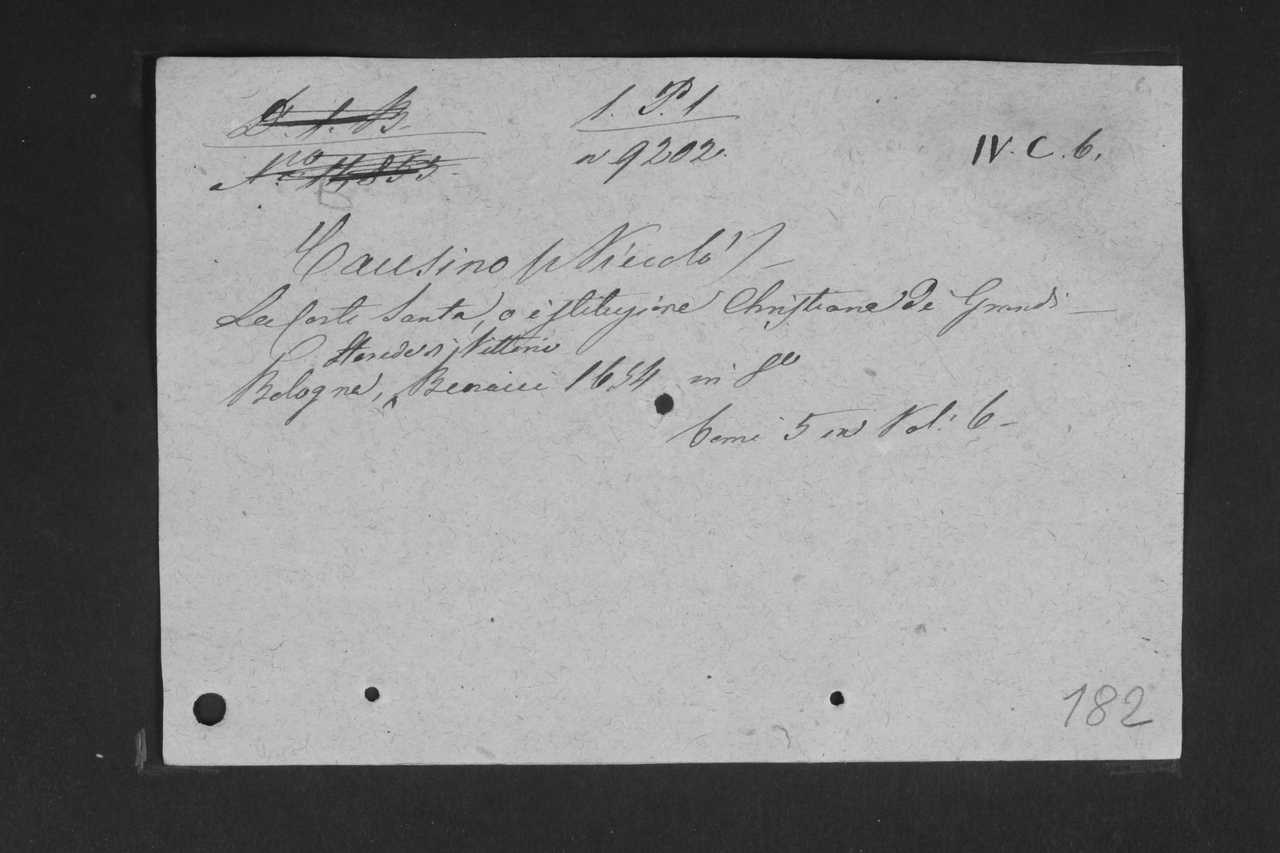 D. 1. B.
1. P. 1
IV. C. 6.
n 9202.
Causino p Nicolò
La Corte Santa, o istituzione Christiana de Grandi
Herede di Vittorio
Bologna, Benacci 1654 in 8º
Tomi 5 in Vol: 6
182